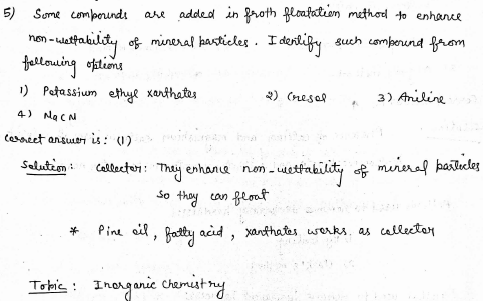 5) Some compounds are added in froth floatation method to enhance
non-wettability of mineral particles. Identify such compound from
following options
1) Potassium ethyl xanthates 2) Cresol 3) Aniline
4) NaCN
Correct answer is: (1)
Solution: Collector: They enhance non-wettability of mineral particles
so they can float
* Pine oil, fatty acid, xanthates works as collector
Topic: Inorganic Chemistry